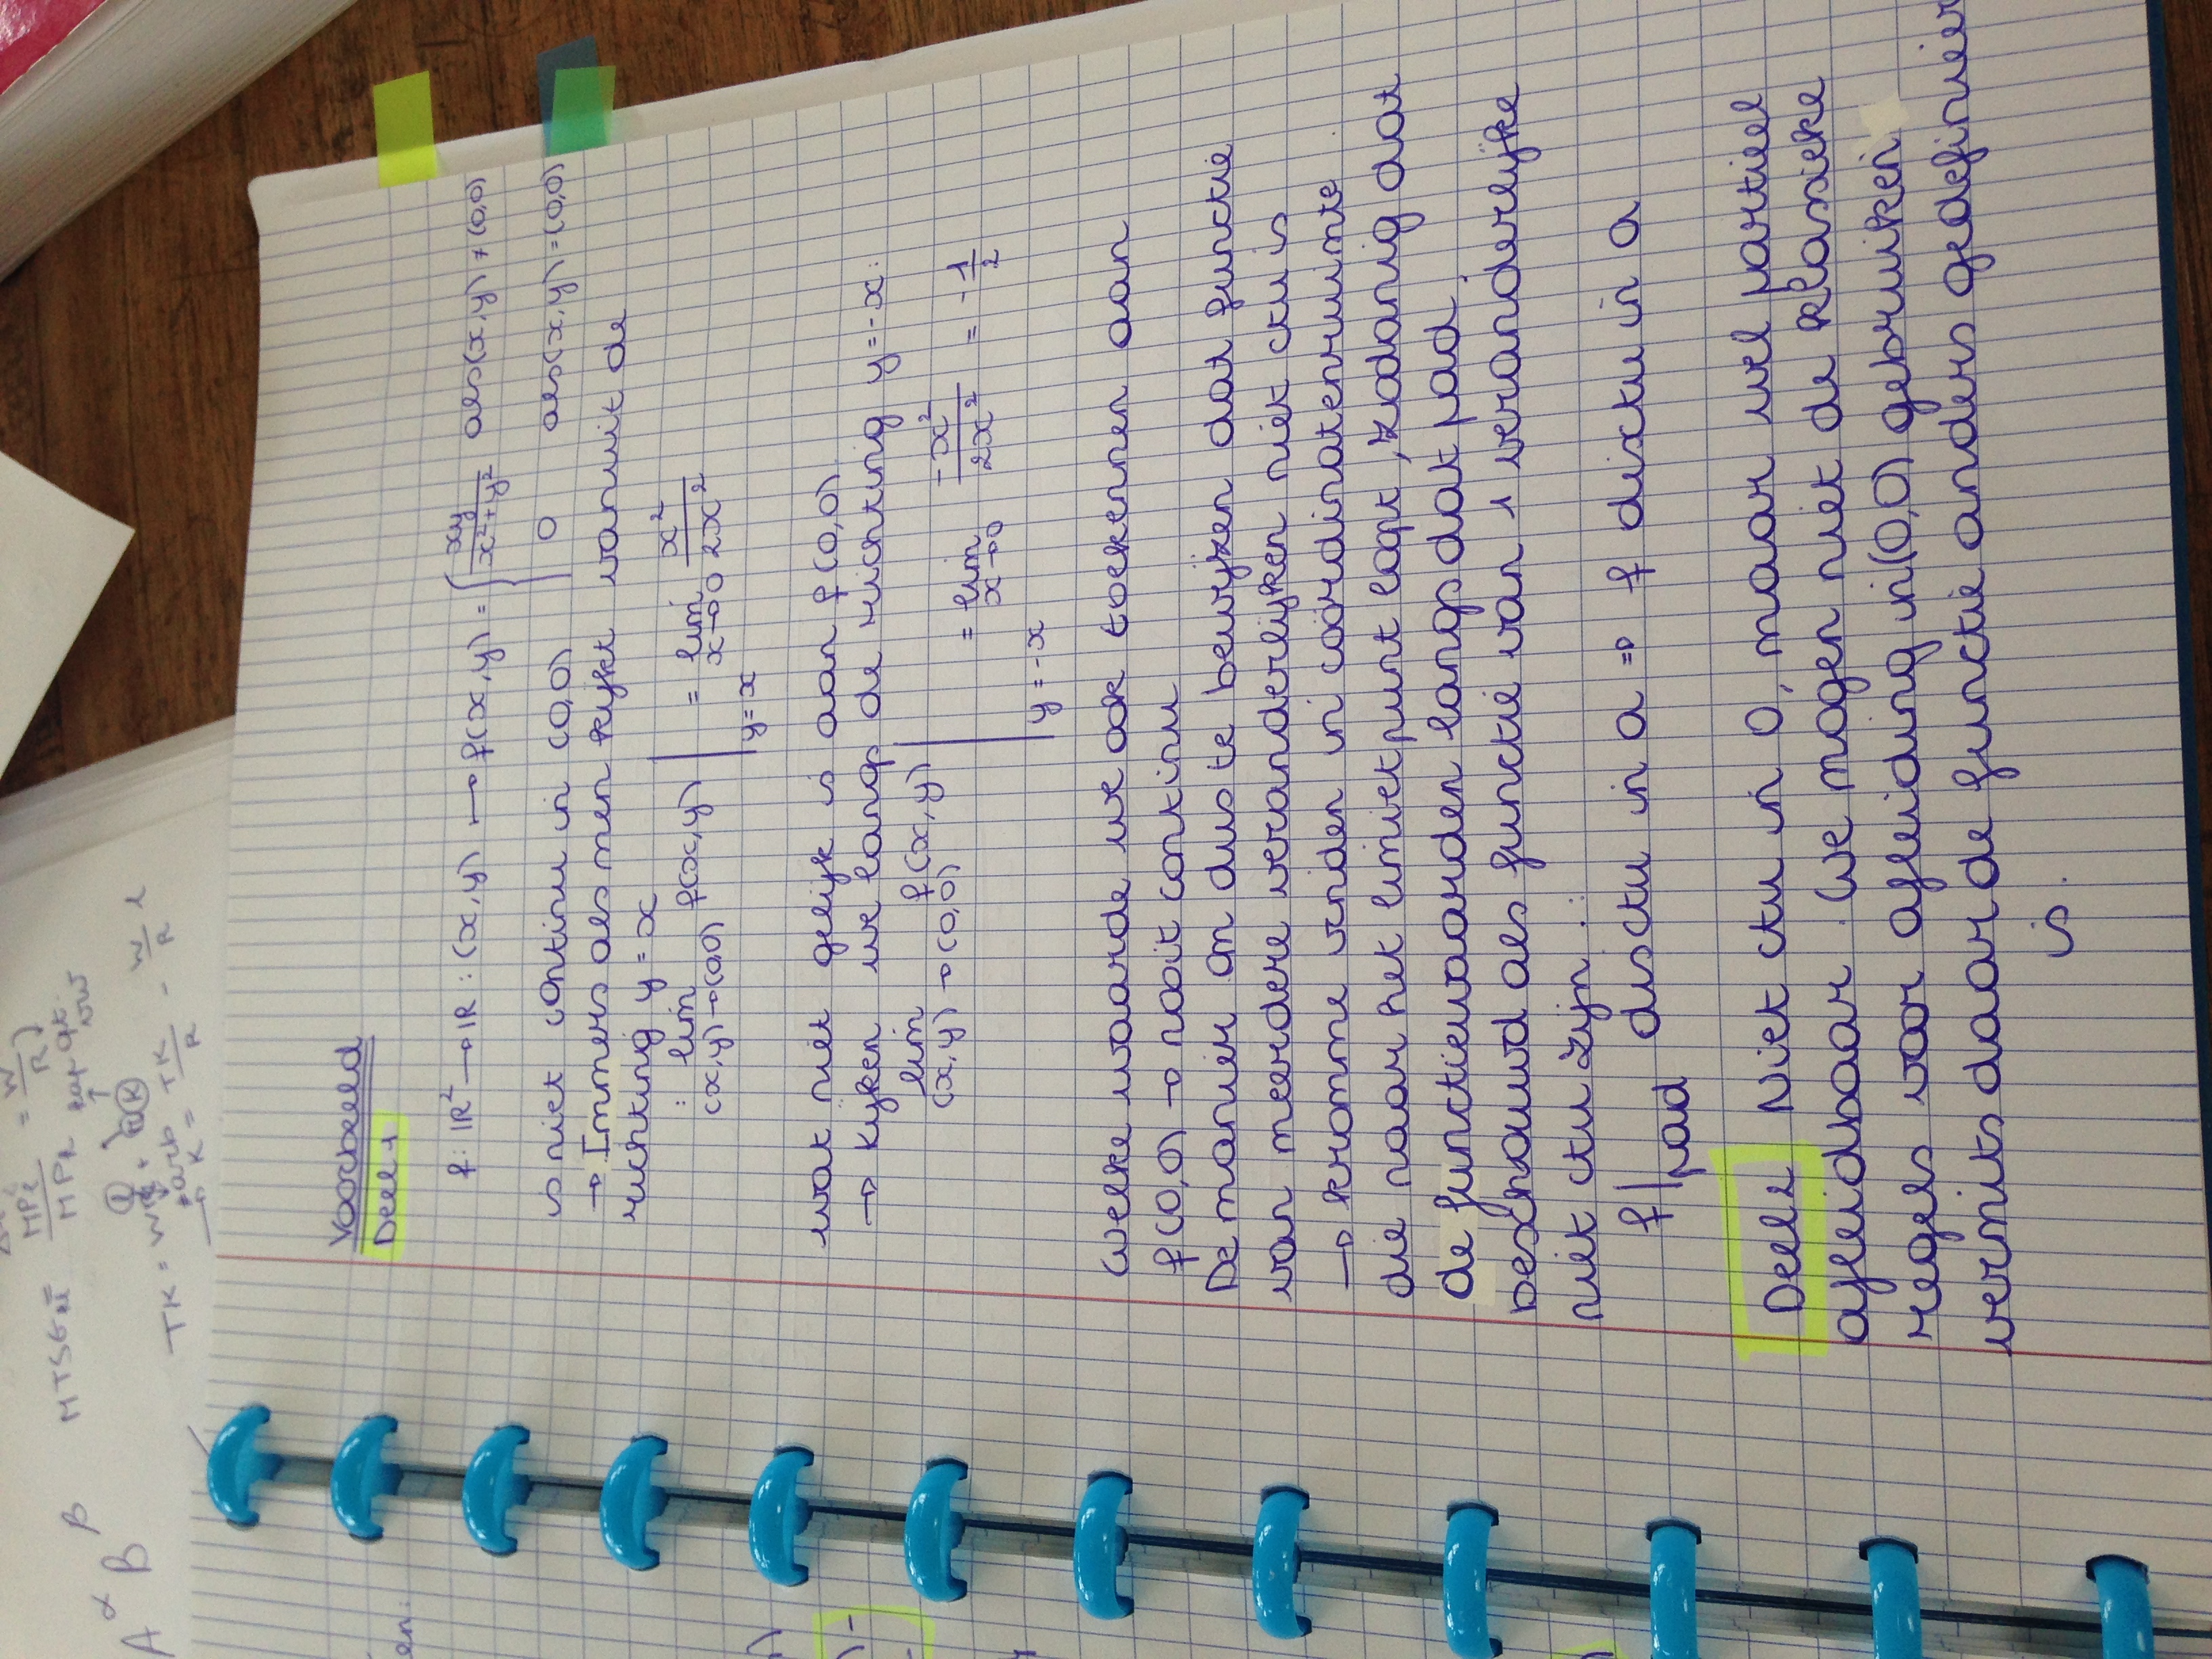 Voorbeeld
Deel 1
f: ℝ² → ℝ : (x,y) ↦ f(x,y) = { xy/(x²+y²) als (x,y) ≠ (0,0)
0 als (x,y) = (0,0)
is niet continu in (0,0)
→ Immers als men kijkt vanuit de
richting y = x
: lim (x,y)→(0,0) f(x,y) | y=x = lim x→0 x²/2x²
wat niet gelijk is aan f(0,0)
→ kijken we langs de richting y=-x:
lim (x,y)→(0,0) f(x,y) | y=-x = lim x→0 -x²/2x² = -1/2
Welke waarde we ook toekennen aan
f(0,0) → nooit continu
De manier om dus te bewijzen dat functie
van meerdere veranderlijken niet ctu is
→ kromme vinden in coördinatenruimte
die naar het limietpunt loopt, zodanig dat
de functiewaarden langs dat pad
beschouwd als functie van 1 veranderlijke
niet ctu zijn :
f|pad disctu in a ⇒ f disctu in a
Deel 2 Niet ctu in 0, maar wel partieel
afleidbaar. We mogen niet de klassieke
regels voor afleiding in (0,0) gebruiken
vermits daar de functie anders gedefinieer
is.
MTSGN
MPL = W
MPK R
TK = WL +
TK - W L
R R
A α B β